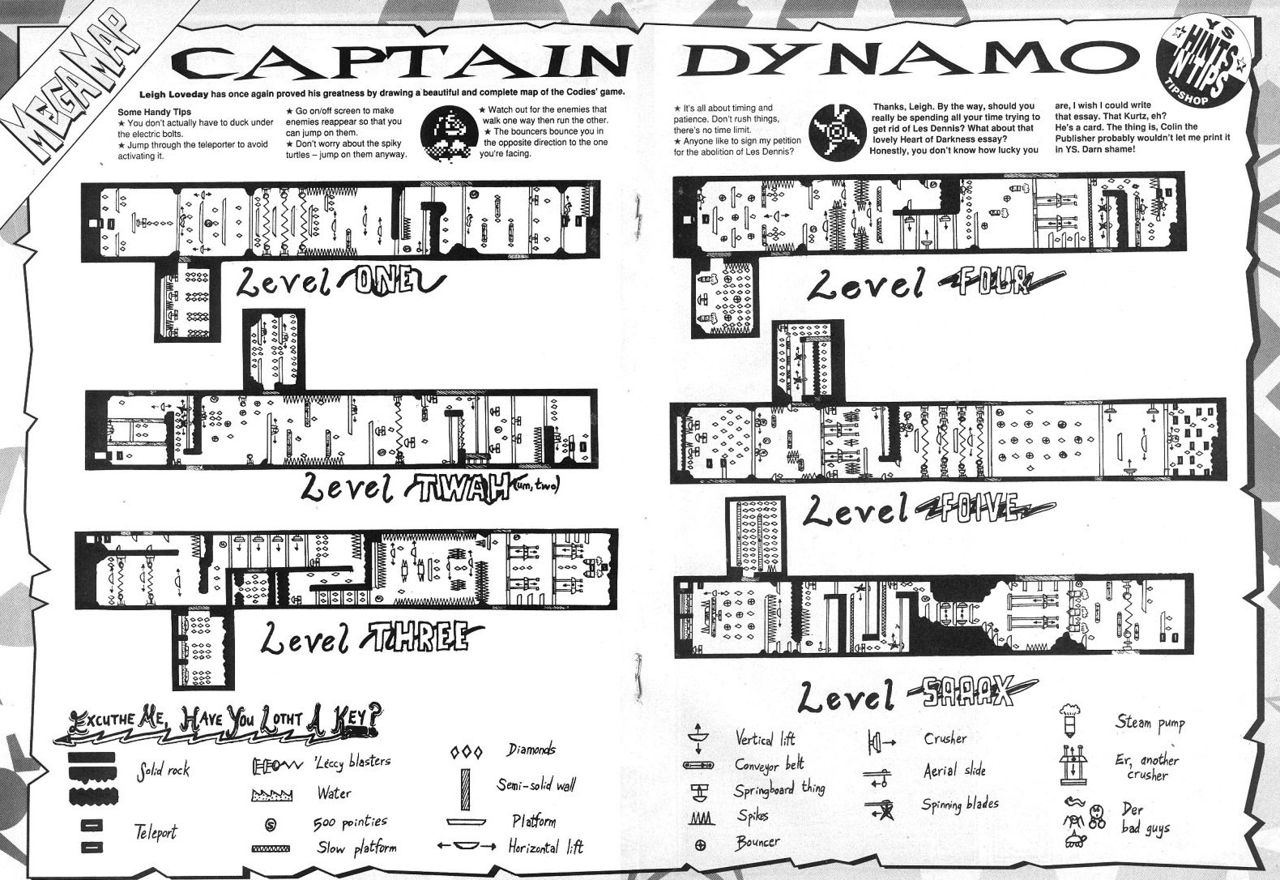 MEGAMAP
CAPTAIN DYNAMO
YS
HINTS
'N'TIPS
TIPSHOP
Leigh Loveday has once again proved his greatness by drawing a beautiful and complete map of the Codies' game.
Some Handy Tips
★ You don't actually have to duck under
the electric bolts.
★ Jump through the teleporter to avoid
activating it.
★ Go on/off screen to make
enemies reappear so that you
can jump on them.
★ Don't worry about the spiky
turtles – jump on them anyway.
★ Watch out for the enemies that
walk one way then run the other.
★ The bouncers bounce you in
the opposite direction to the one
you're facing.
★ It's all about timing and
patience. Don't rush things,
there's no time limit.
★ Anyone like to sign my petition
for the abolition of Les Dennis?
Thanks, Leigh. By the way, should you
really be spending all your time trying to
get rid of Les Dennis? What about that
lovely Heart of Darkness essay?
Honestly, you don't know how lucky you
are, I wish I could write
that essay. That Kurtz, eh?
He's a card. The thing is, Colin the
Publisher probably wouldn't let me print it
in YS. Darn shame!
Level ONE
Level TWAH (um, two)
Level THREE
Level FOUR
Level FOIVE
Level SAAAX
EXCUTHE ME, HAVE YOU LOTHT A KEY?
Solid rock
Teleport
'Leccy blasters
Water
500 pointies
Slow platform
Diamonds
Semi-solid wall
Platform
Horizontal lift
Vertical lift
Conveyor belt
Springboard thing
Spikes
Bouncer
Crusher
Aerial slide
Spinning blades
Steam pump
Er, another
crusher
Der
bad guys